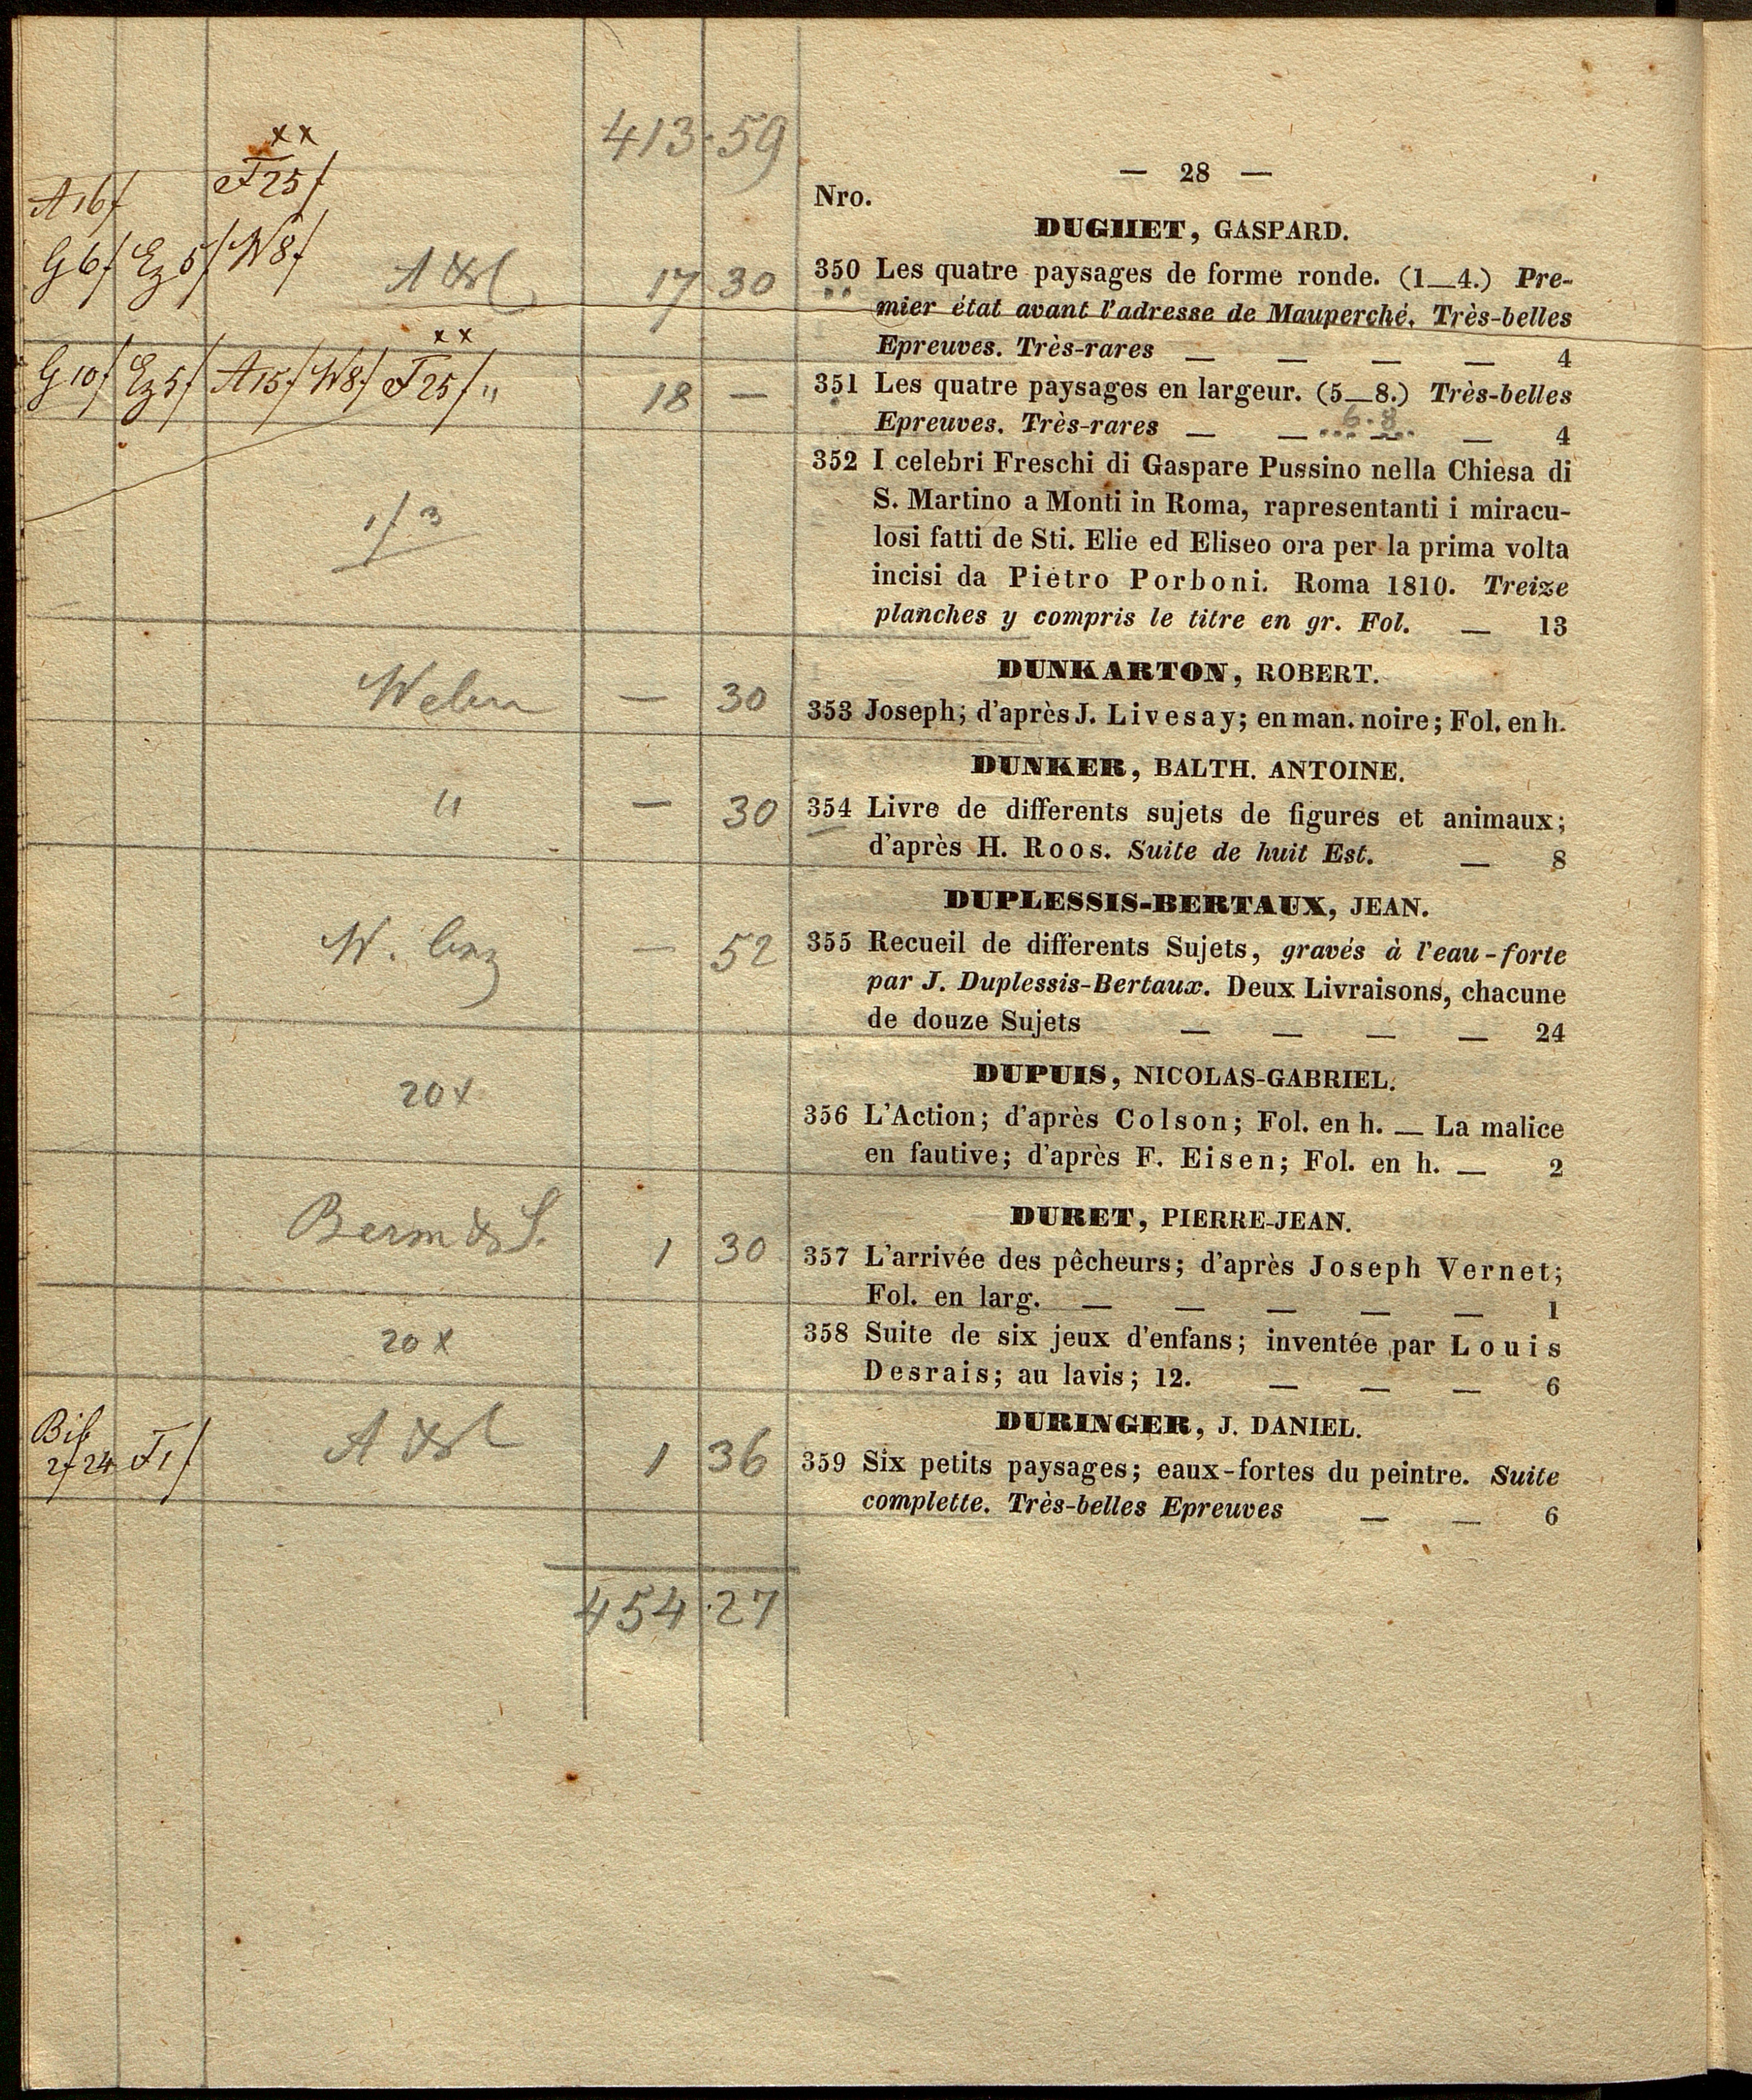 413 · 59
— 28 —
Nro.
x x
A 16f F 25f
DUGHET, GASPARD.
G 6f Ez 5f W 8f 17 30
350 Les quatre paysages de forme ronde. (1—4.) Pre-
mier état avant l'adresse de Mauperché. Très-belles
Epreuves. Très-rares — — — — 4
x x
G 10f Ez 5f A 15f W 8f F 25f " 18 —
351 Les quatre paysages en largeur. (5—8.) Très-belles
6·8
Epreuves. Très-rares — — — — 4
352 I celebri Freschi di Gaspare Pussino nella Chiesa di
S. Martino a Monti in Roma, rapresentanti i miracu-
1f 3
losi fatti de Sti. Elie ed Eliseo ora per la prima volta
incisi da Pietro Porboni. Roma 1810. Treize
planches y compris le titre en gr. Fol. — 13
DUNKARTON, ROBERT.
— 30
353 Joseph; d'après J. Livesay; en man. noire; Fol. en h.
DUNKER, BALTH. ANTOINE.
" — 30
354 Livre de differents sujets de figures et animaux;
d'après H. Roos. Suite de huit Est. — 8
DUPLESSIS-BERTAUX, JEAN.
W. — 52
355 Recueil de differents Sujets, gravés à l'eau-forte
par J. Duplessis-Bertaux. Deux Livraisons, chacune
de douze Sujets — — — — 24
DUPUIS, NICOLAS-GABRIEL.
20 x
356 L'Action; d'après Colson; Fol. en h. — La malice
en fautive; d'après F. Eisen; Fol. en h. — 2
DURET, PIERRE-JEAN.
Berm & S. 1 30
357 L'arrivée des pêcheurs; d'après Joseph Vernet;
Fol. en larg. — — — — — 1
20 x
358 Suite de six jeux d'enfans; inventée par Louis
Desrais; au lavis; 12. — — — 6
DURINGER, J. DANIEL.
Bib
2f 24 F 1f 1 36
359 Six petits paysages; eaux-fortes du peintre. Suite
complette. Très-belles Epreuves — — 6
454 · 27